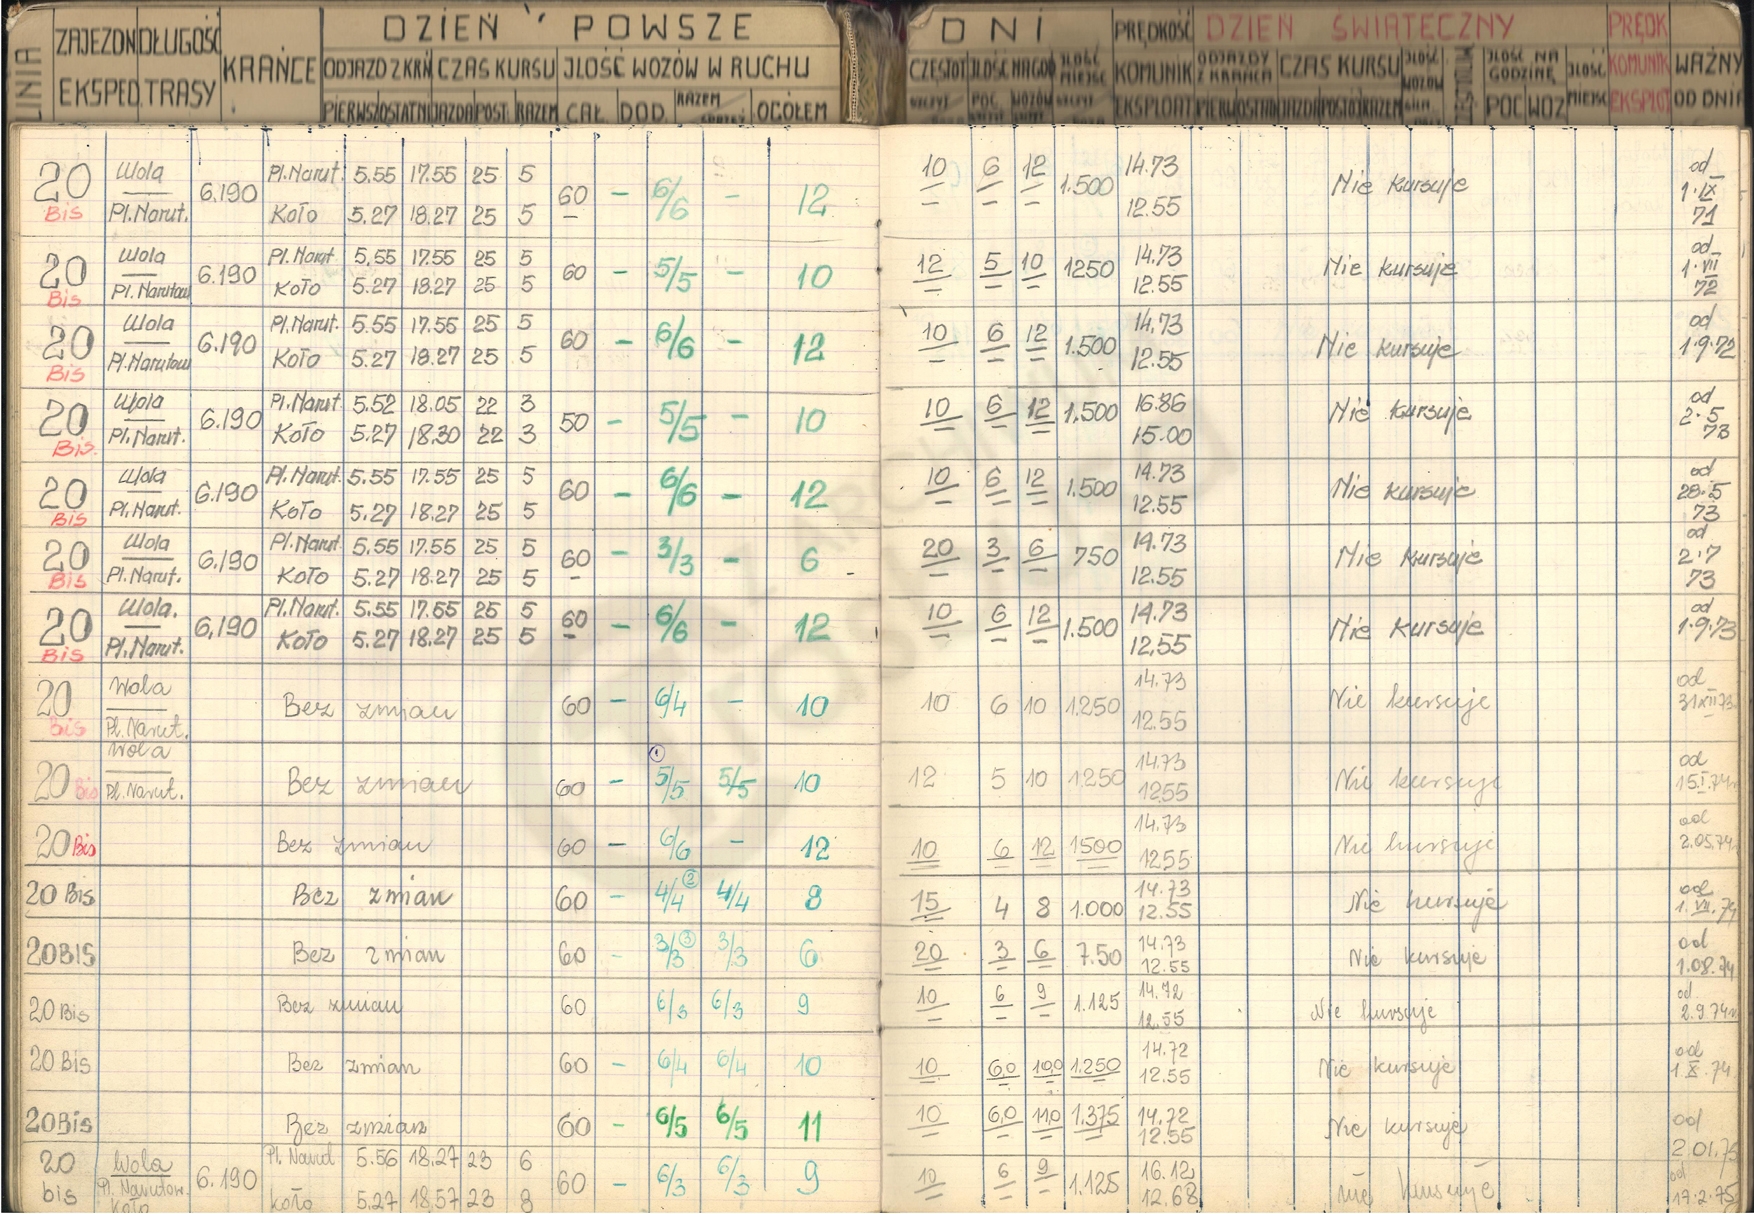 DZIEŃ POWSZE DNI DZIEŃ ŚWIĄTECZNY
LINIA ZAJEZDN EKSPED DŁUGOŚĆ TRASY KRAŃCE ODJAZD Z KRŃ CZAS KURSU JLOŚĆ WOZÓW W RUCHU CZĘSTOT JLOŚĆ NA GOD JLOŚĆ MIEJSC PRĘDKOŚĆ KOMUNIK EKSPLOAT ODJAZDY Z KRAŃCA CZAS KURSU JLOŚĆ WOZÓW JLOŚĆ NA GODZINĘ JLOŚĆ MIEJSC PRĘDK KOMUNIK EKSPLOT WAŻNY OD DNIA
PIERWSZ OSTATNI JAZDA POST. RAZEM CAŁ. DOD. RAZEM OGÓŁEM POC. WOZÓW POC WOZ
20 Bis Wola Pl.Narut. 6.190 Pl.Narut. 5.55 17.55 25 5 60 - 6/6 - 12 10 6 12 1.500 14.73 Nie kursuje od 1.IX 71
Koło 5.27 18.27 25 5 12.55
20 Bis Wola Pl.Narutow 6.190 Pl.Narut 5.55 17.55 25 5 60 - 5/5 - 10 12 5 10 1250 14.73 Nie kursuje od 1.VII 72
Koło 5.27 18.27 25 5 12.55
20 Bis Wola Pl.Narutow 6.190 Pl.Narut. 5.55 17.55 25 5 60 - 6/6 - 12 10 6 12 1.500 14.73 Nie kursuje od 1.9.72
Koło 5.27 18.27 25 5 12.55
20 Bis. Wola Pl.Narut. 6.190 Pl.Narut. 5.52 18.05 22 3 50 - 5/5 - 10 10 6 12 1.500 16.86 Nie kursuje od 2.5 73
Koło 5.27 18.30 22 3 15.00
20 Bis Wola Pl.Narut. 6.190 Pl.Narut. 5.55 17.55 25 5 60 - 6/6 - 12 10 6 12 1.500 14.73 Nie kursuje od 28.5 73
Koło 5.27 18.27 25 5 12.55
20 Bis Wola Pl.Narut. 6.190 Pl.Narut 5.55 17.55 25 5 60 - 3/3 - 6 20 3 6 750 14.73 Nie kursuje od 2.7 73
Koło 5.27 18.27 25 5 12.55
20 Bis Wola. Pl.Narut. 6.190 Pl.Narut. 5.55 17.55 25 5 60 - 6/6 - 12 10 6 12 1.500 14.73 Nie kursuje od 1.9.73
Koło 5.27 18.27 25 5 12.55
20 Bis Wola Pl.Narut. Bez zmian 60 - 6/4 - 10 10 6 10 1.250 14.73 12.55 Nie kursuje od 31XII73
20 Bis Wola Pl.Narut. Bez zmian 60 - 1 5/5 5/5 10 12 5 10 1250 14.73 12.55 Nie kursuje od 15.I.74
20 Bis Bez zmian 60 - 6/6 - 12 10 6 12 1500 14.73 12.55 Nie kursuje od 2.05.74
20 Bis Bez zmian 60 - 4/4 2 4/4 8 15 4 8 1.000 14.73 12.55 Nie kursuje od 1.VII.74
20 BIS Bez zmian 60 - 3/3 3 3/3 6 20 3 6 7.50 14.73 12.55 Nie kursuje od 1.08.74
20 Bis Bez zmian 60 6/3 6/3 9 10 6 9 1.125 14.72 12.55 Nie kursuje od 2.9.74
20 Bis Bez zmian 60 - 6/4 6/4 10 10 6,0 10,0 1.250 14.72 12.55 Nie kursuje od 1.X.74
20 Bis Bez zmian 60 - 6/5 6/5 11 10 6,0 11,0 1.375 14.72 12.55 Nie kursuje od 2.01.75
20 bis Wola Pl.Narutow. Koło 6.190 Pl.Narut 5.56 18.27 23 6 60 - 6/3 6/3 9 10 6 9 1.125 16.12 nie kursuje od 17.2.75
Koło 5.27 18.57 23 8 12.68